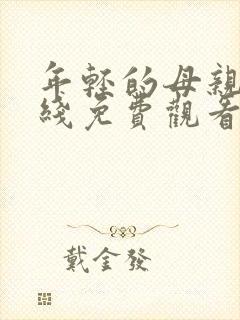 年輕的母親
綫免費觀看
戴金發